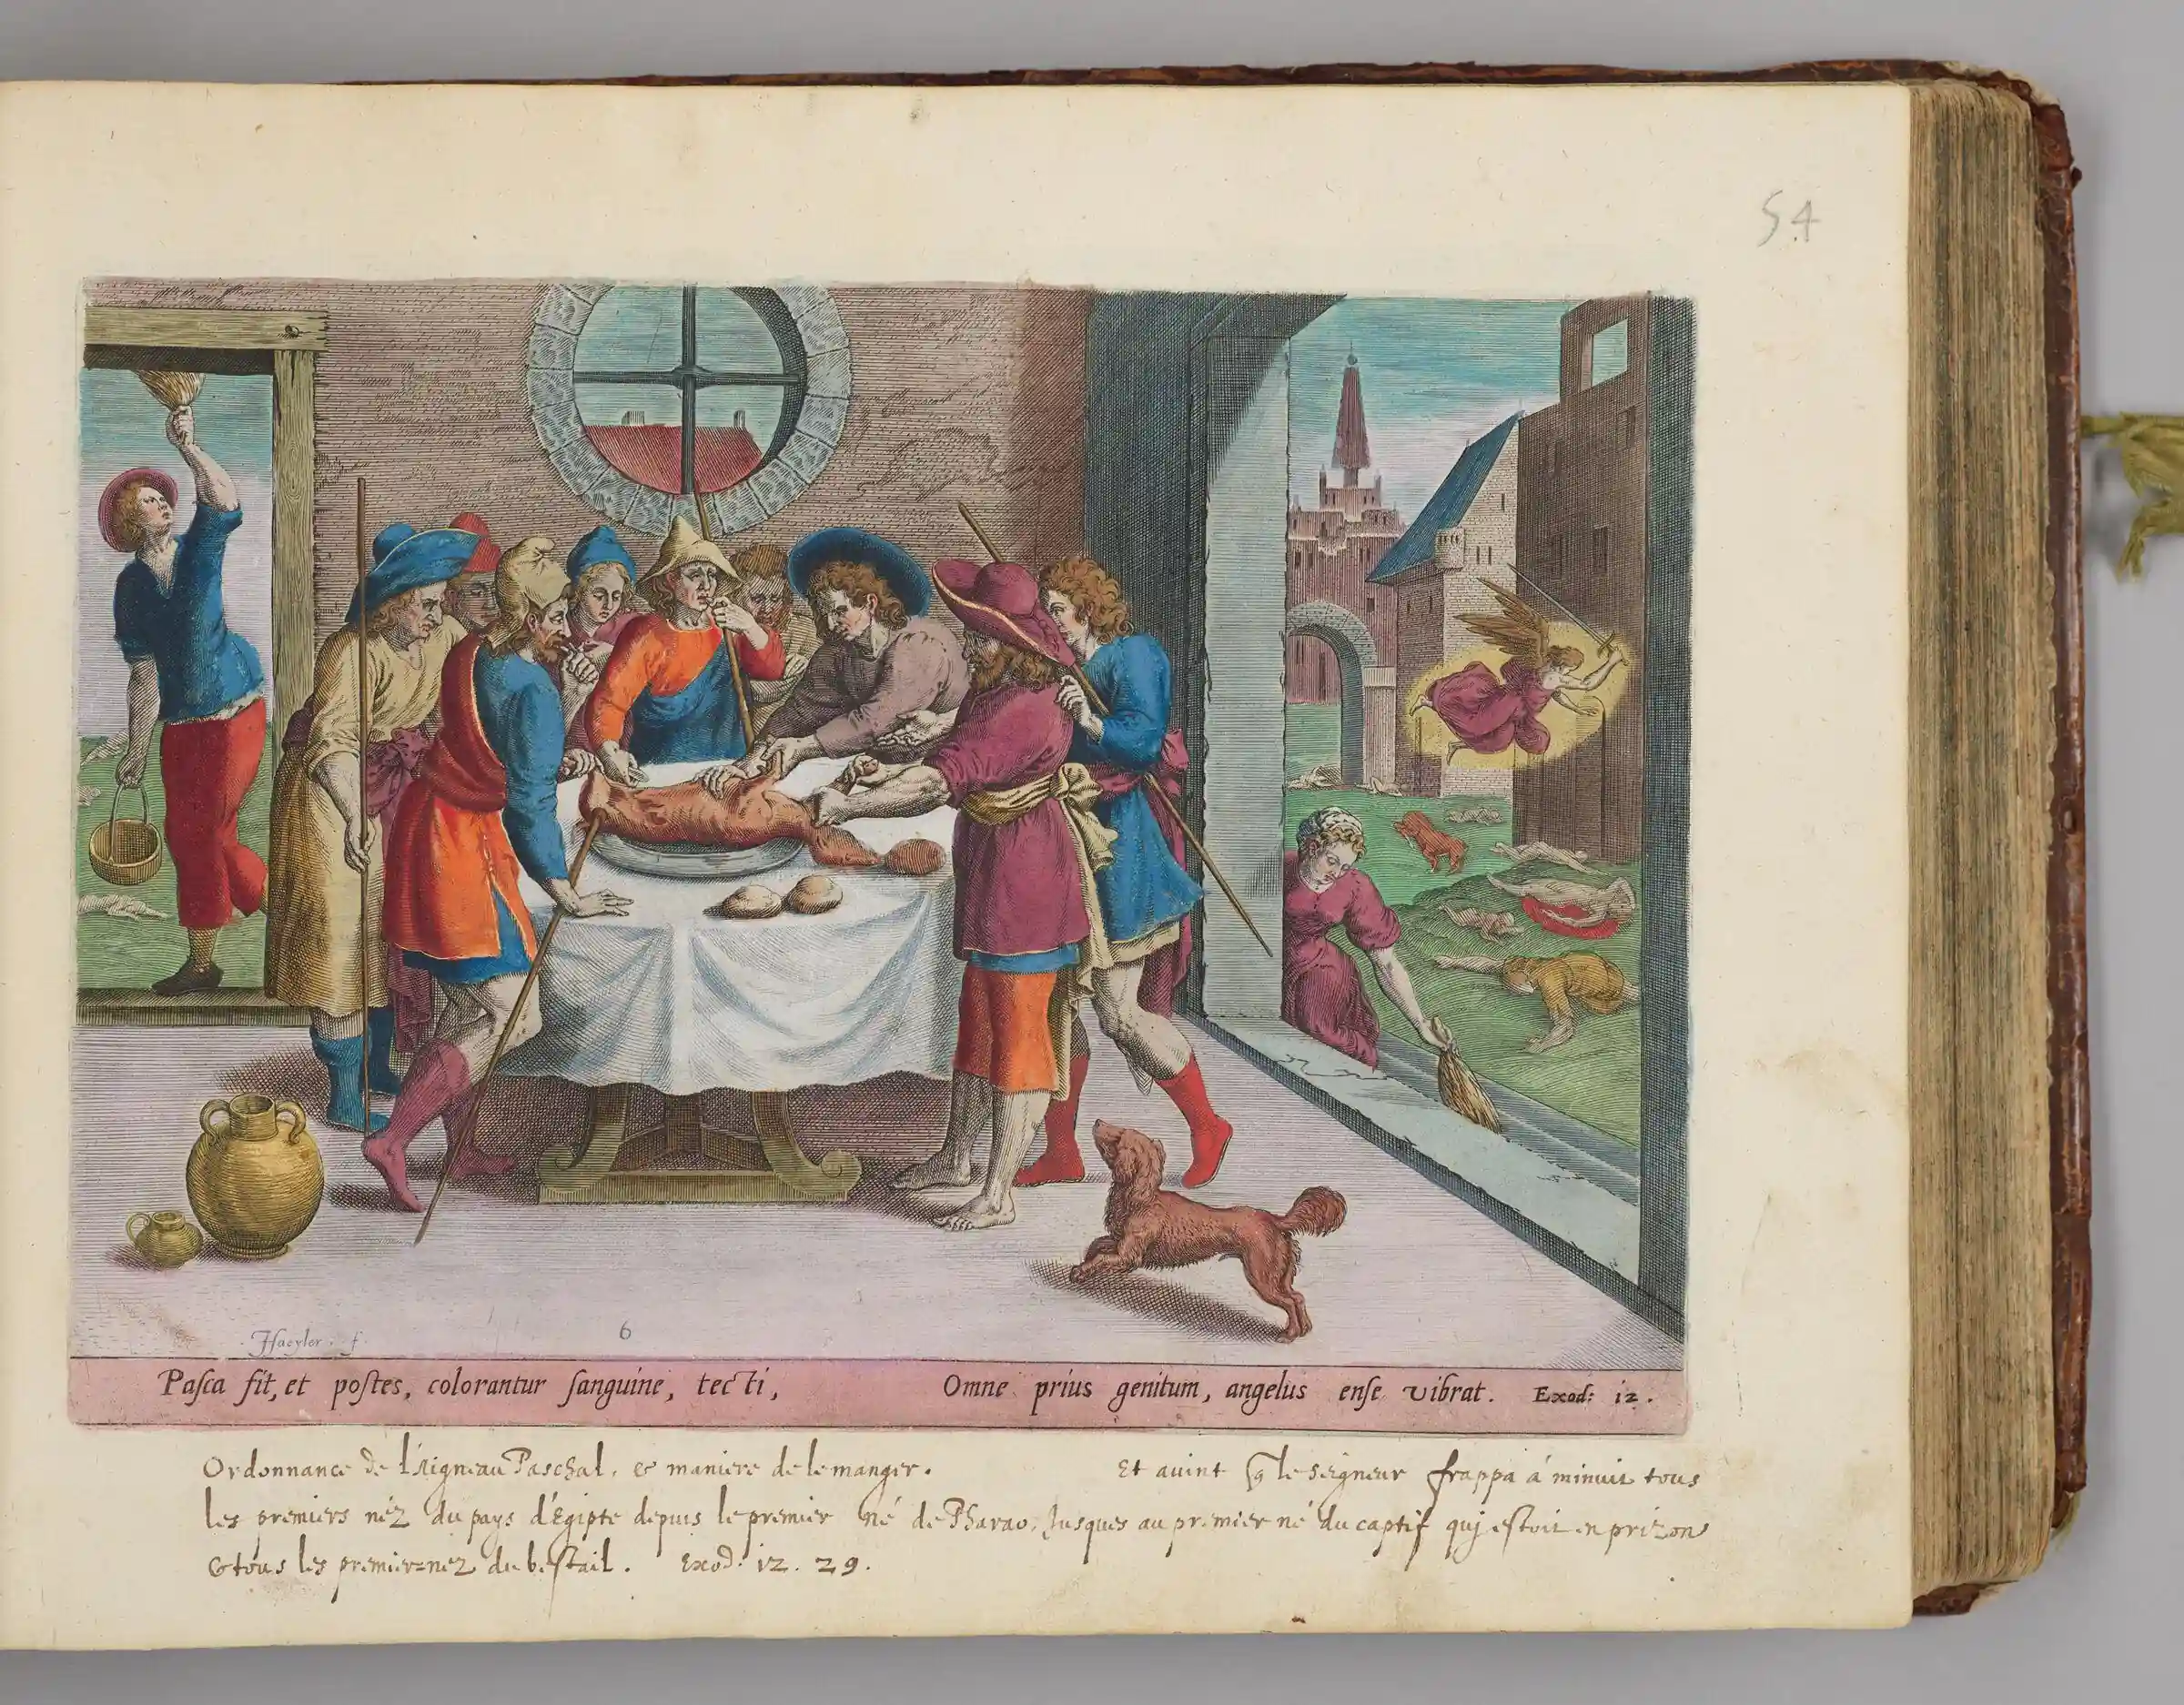 54
Haeyler. f.
6
Paſca fit, et poſtes, colorantur ſanguine, tecti, Omne prius genitum, angelus enſe vibrat. Exod: 12.
Ordonnance de l'Aigneau Paschal, & maniere de le manger. Et auint q̃ le seigneur frappa á minuit tous
les premiers néz du pays d'Egipte depuis le premier né de Pharao, Jusques au premier né du captif quj estoit en prizon
& tous les premier=nez du bestail. Exod. 12. 29.